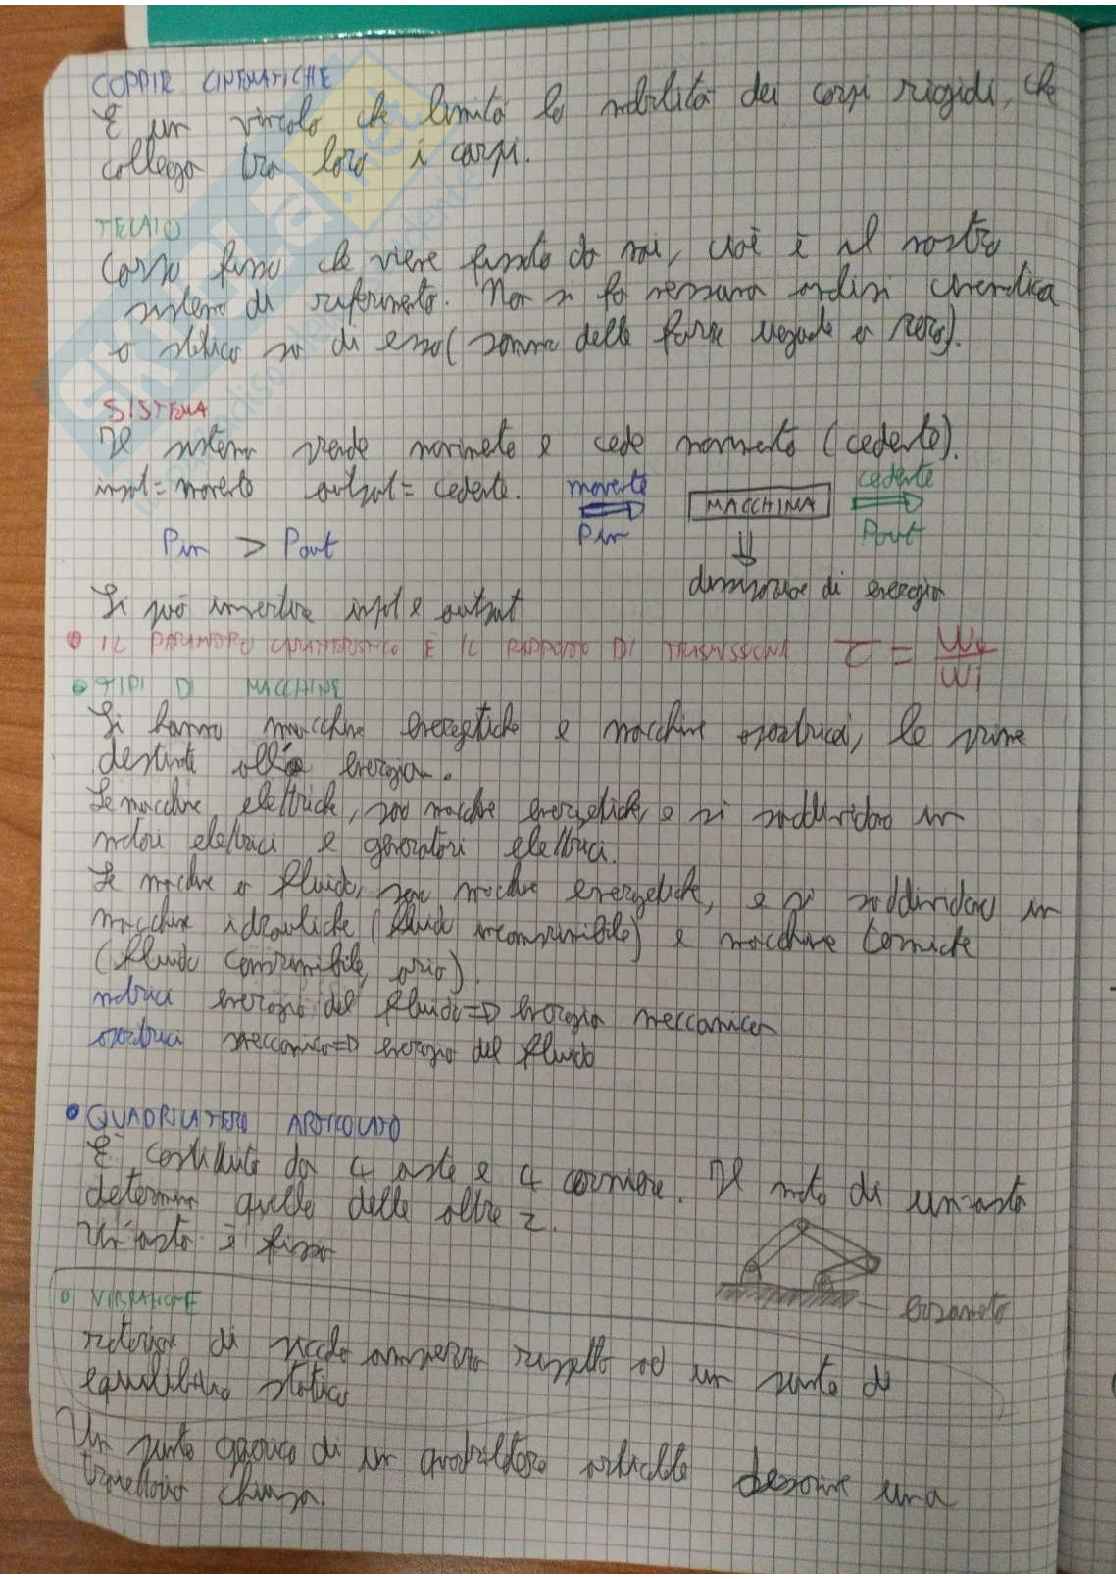 COPPIE CINEMATICHE
È un vincolo che limita la mobilità dei corpi rigidi, che
collega tra loro i corpi.
TELAIO
Corpo fisso che viene fissato da noi, cioè è il nostro
sistema di riferimento. Non si fa nessuna analisi cinematica
o statica su di esso (somma delle forze uguale a zero).
SISTEMA
Il sistema prende movimento e cede movimento (cedente).
input = movente output = cedente.
movente
Pin
MACCHINA
cedente
Pout
Pin > Pout
dissipazione di energia
Si può invertire input e output
IL PARAMETRO CARATTERISTICO È IL RAPPORTO DI TRASMISSIONE τ =
TIPI DI MACCHINE
Si hanno macchine energetiche e macchine operatrici, le prime
destinate all' energia.
Le macchine elettriche, sono macchine energetiche, e si suddividono in
motori elettrici e generatori elettrici.
Le macchine a fluido, sono macchine energetiche, e si suddividono in
macchine idrauliche (fluido incomprimibile) e macchine termiche
(fluido comprimibile, aria).
motrici energia del fluido => energia meccanica
operatrici meccanica => energia del fluido
QUADRILATERO ARTICOLATO
È costituito da 4 aste e 4 cerniere. Il moto di un'asta
determina quello delle altre 2.
Un'asta è fissa
basamento
VIBRAZIONE
di piccola ampiezza rispetto ad un punto di
equilibrio statico
Un punto di un quadrilatero articolato descrive una
traiettoria chiusa.